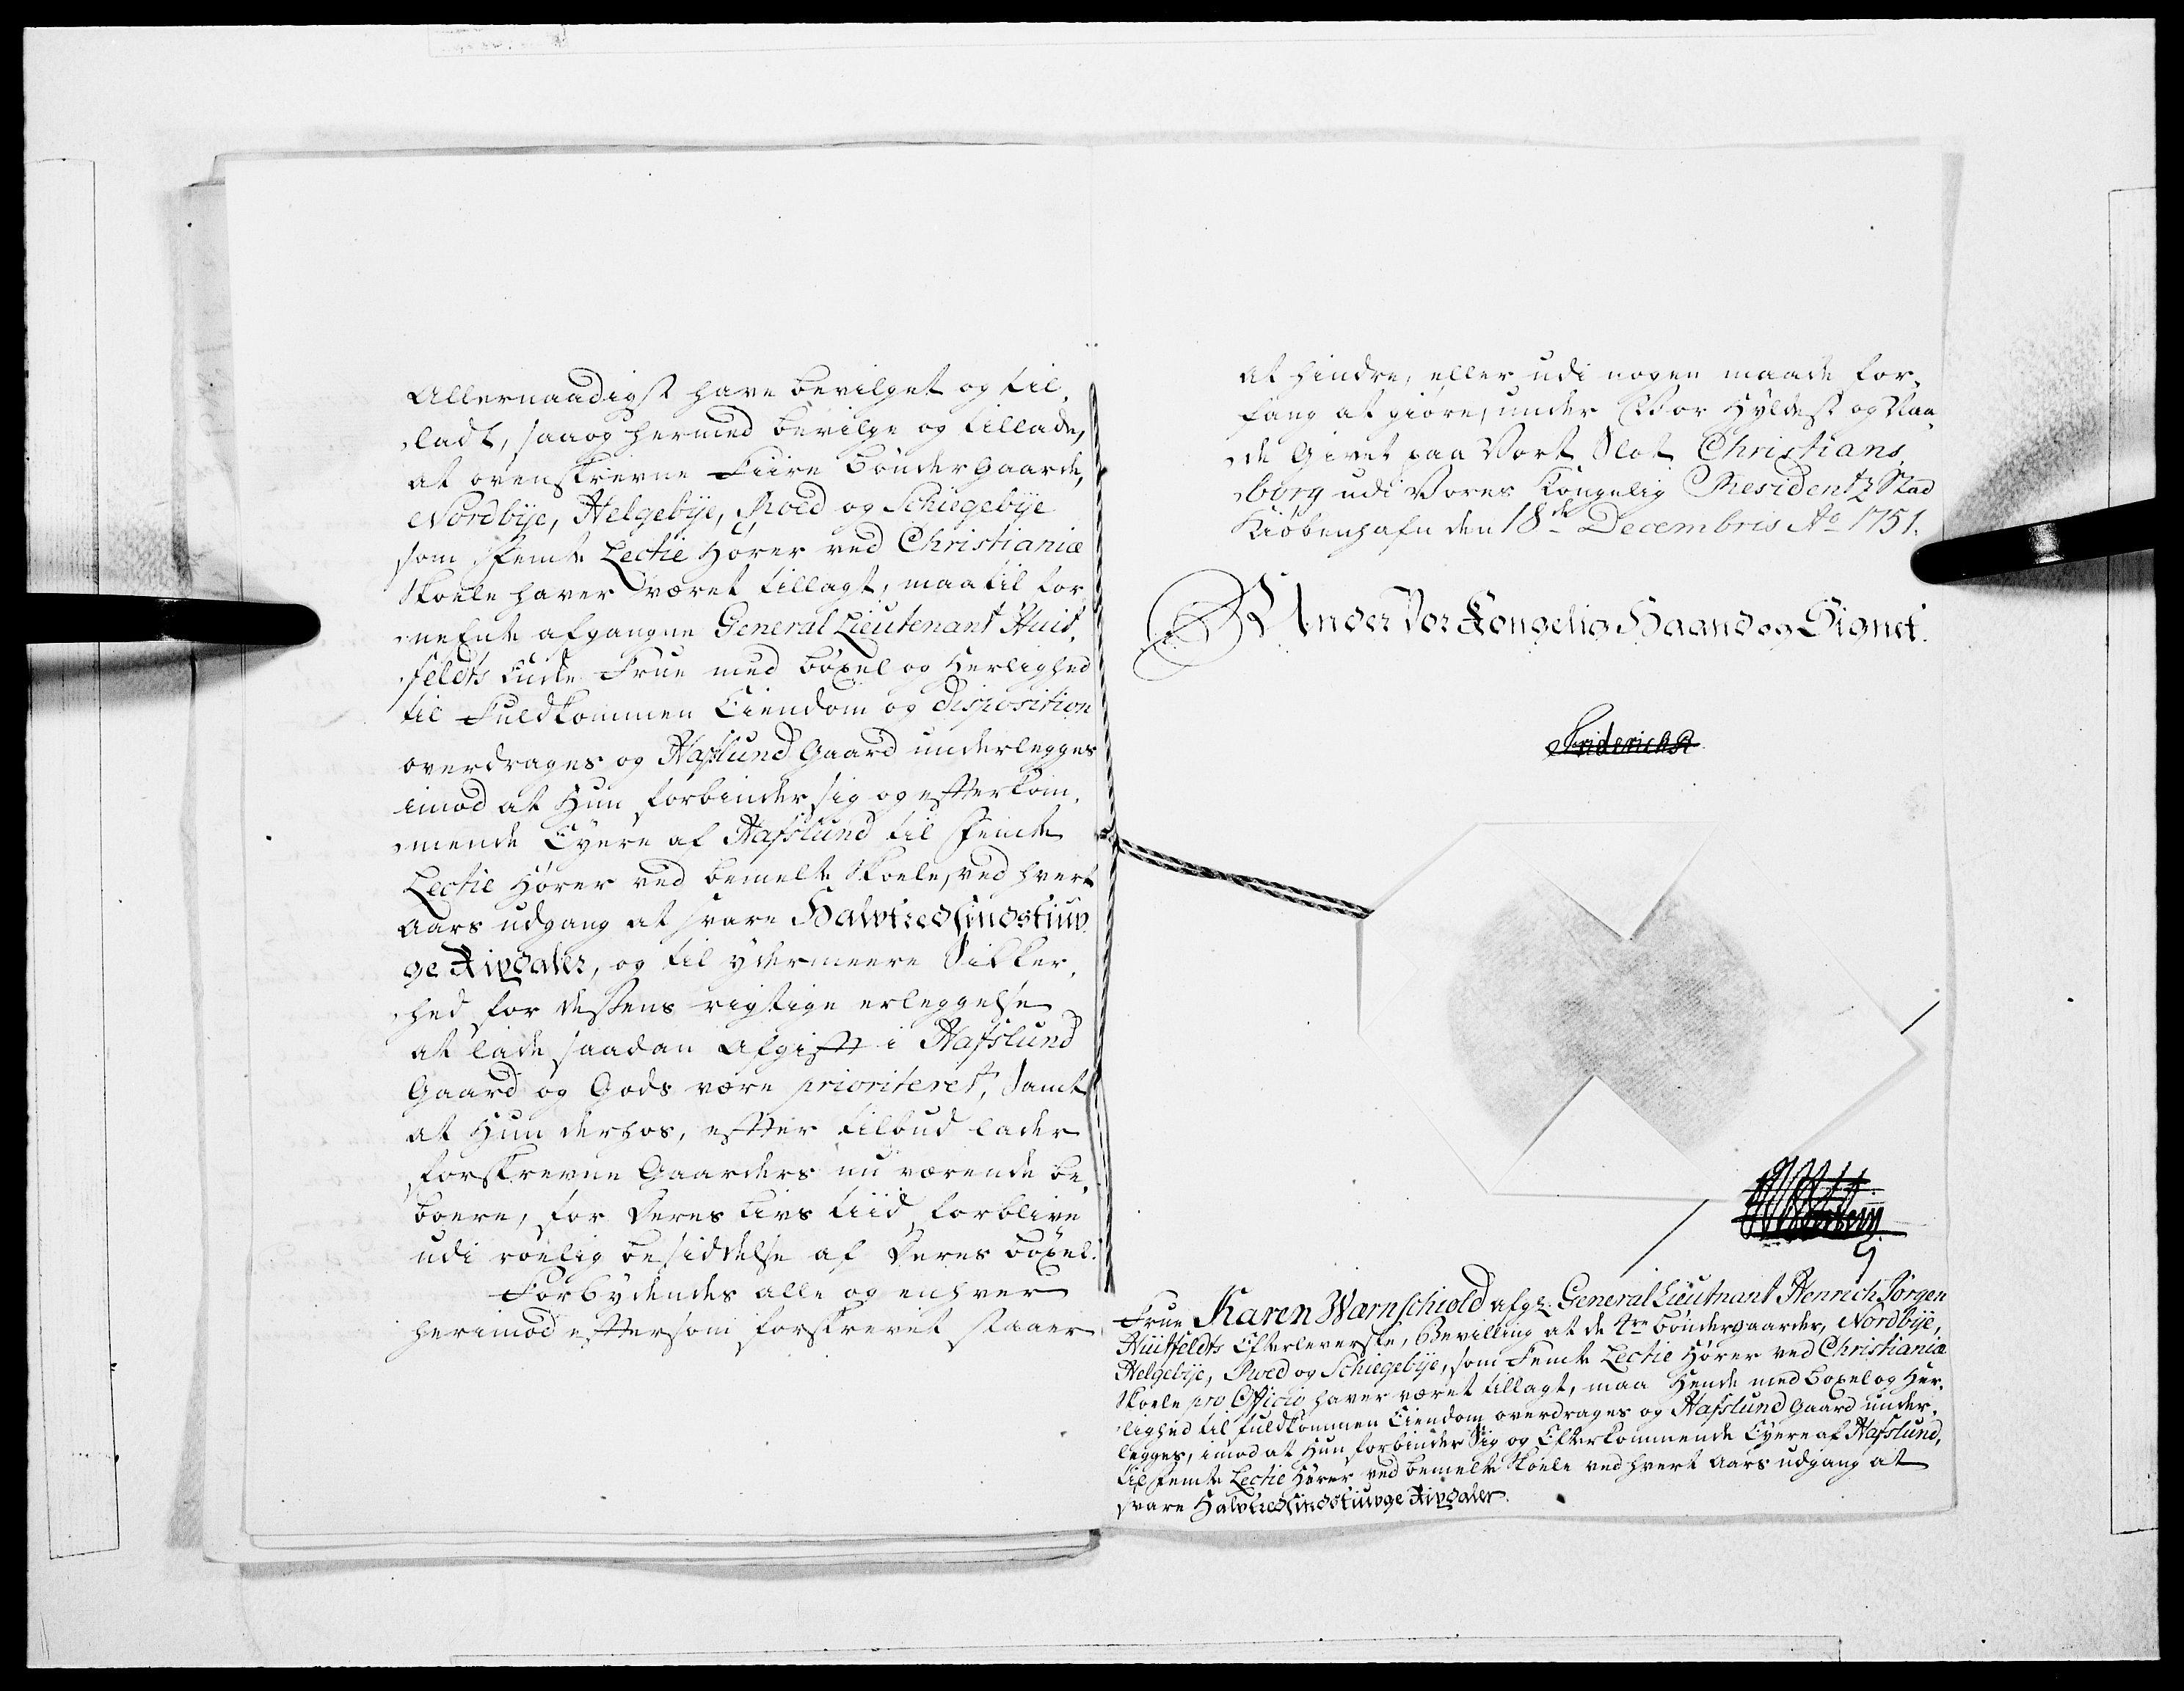 Allernaadigst have bevilget og til,
ladt, saa og hermed bevilge og tillade,
at ovenskrevne Fiire Bönder Gaarde,
Nordbÿe, Helgebÿe, Roed og Schiegebÿe
som Femte Lectie Hörer ved Christianiæ
Skoele haver været tillagt, maa til for,
neÉnte afgangne General Lieutenant Huit,
feldts Frue med böxel og Herlighed
til Fuldkommen Eiendom og disposition
overdrages og Hafslund Gaard underlegges
imod at Hun forbinder sig og efterkom,
mende Eÿere af Hafslund til Femte
Lectie Hörer ved bemelte Skoele, ved hvert
Aars udgang at svare Halvtredsindstiuv,
ge Rixdaler, og til ÿdermeere Sikker,
hed for dessens rigtige erleggelse
at lade saadan Afgift i Hafslund
Gaard og Gods være prioriteret, Samt
at Hun derhos, efter tilbud lader
forskrevne Gaarders nu værende be,
boere, for deres Livs Tiid forblive
udi roelig besiddelse af deres böxel.
Forbÿdendes alle og enhver
herimod eftersom forskrevet staaer
at hindre, eller udi nogen maade for,
fang at giöre, under Vor Hÿldest og Naa,
de Givet paa Vort Slot Christians,
borg udi Vores Kongelig Residentz Stad
Kiöbenhafn den 18de Decembris Ao 1751.
Under Vor Kongelig Haand og Signet.
Friderich R
Frue Karen Wærnschiold afg: General Lieutnant Henrich Jörgen
Huitfeldts Efterleverske, Bevilling at de 4re böndergaarder, Nordbÿe,
Helgebÿe, Roed og Schiegebÿe, som Femte Lectie Hörer ved Christianiæ
Skoele pro Officio haver været tillagt, maa Hende med Böxel og Her,
lighed til fuldkommen Eiendom overdrages og Hafslund Gaard under,
legges, imod at Hun forbinder Sig og Efterkommende Eÿere af Hafslund,
til Femte Lectie Hörer ved bemelte Skoele ved hvert Aars udgang at
svare Halvtredsindstiuvge Rixdaler.